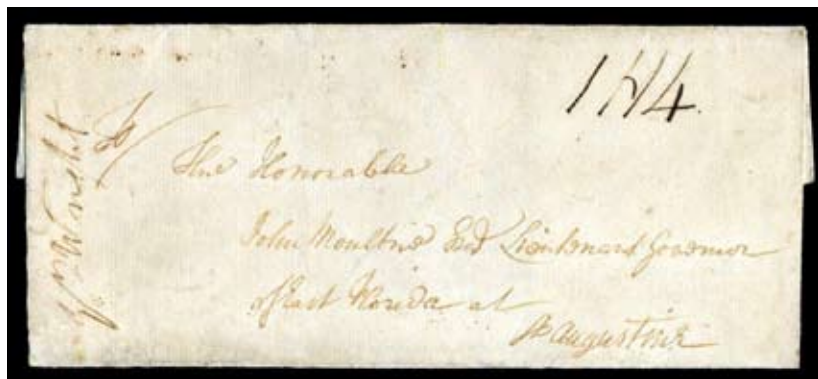 1 H 4
To
The Honorable
John Moultrie Esqr Lieutenant Governor
of East Florida at
St Augustine
Wright